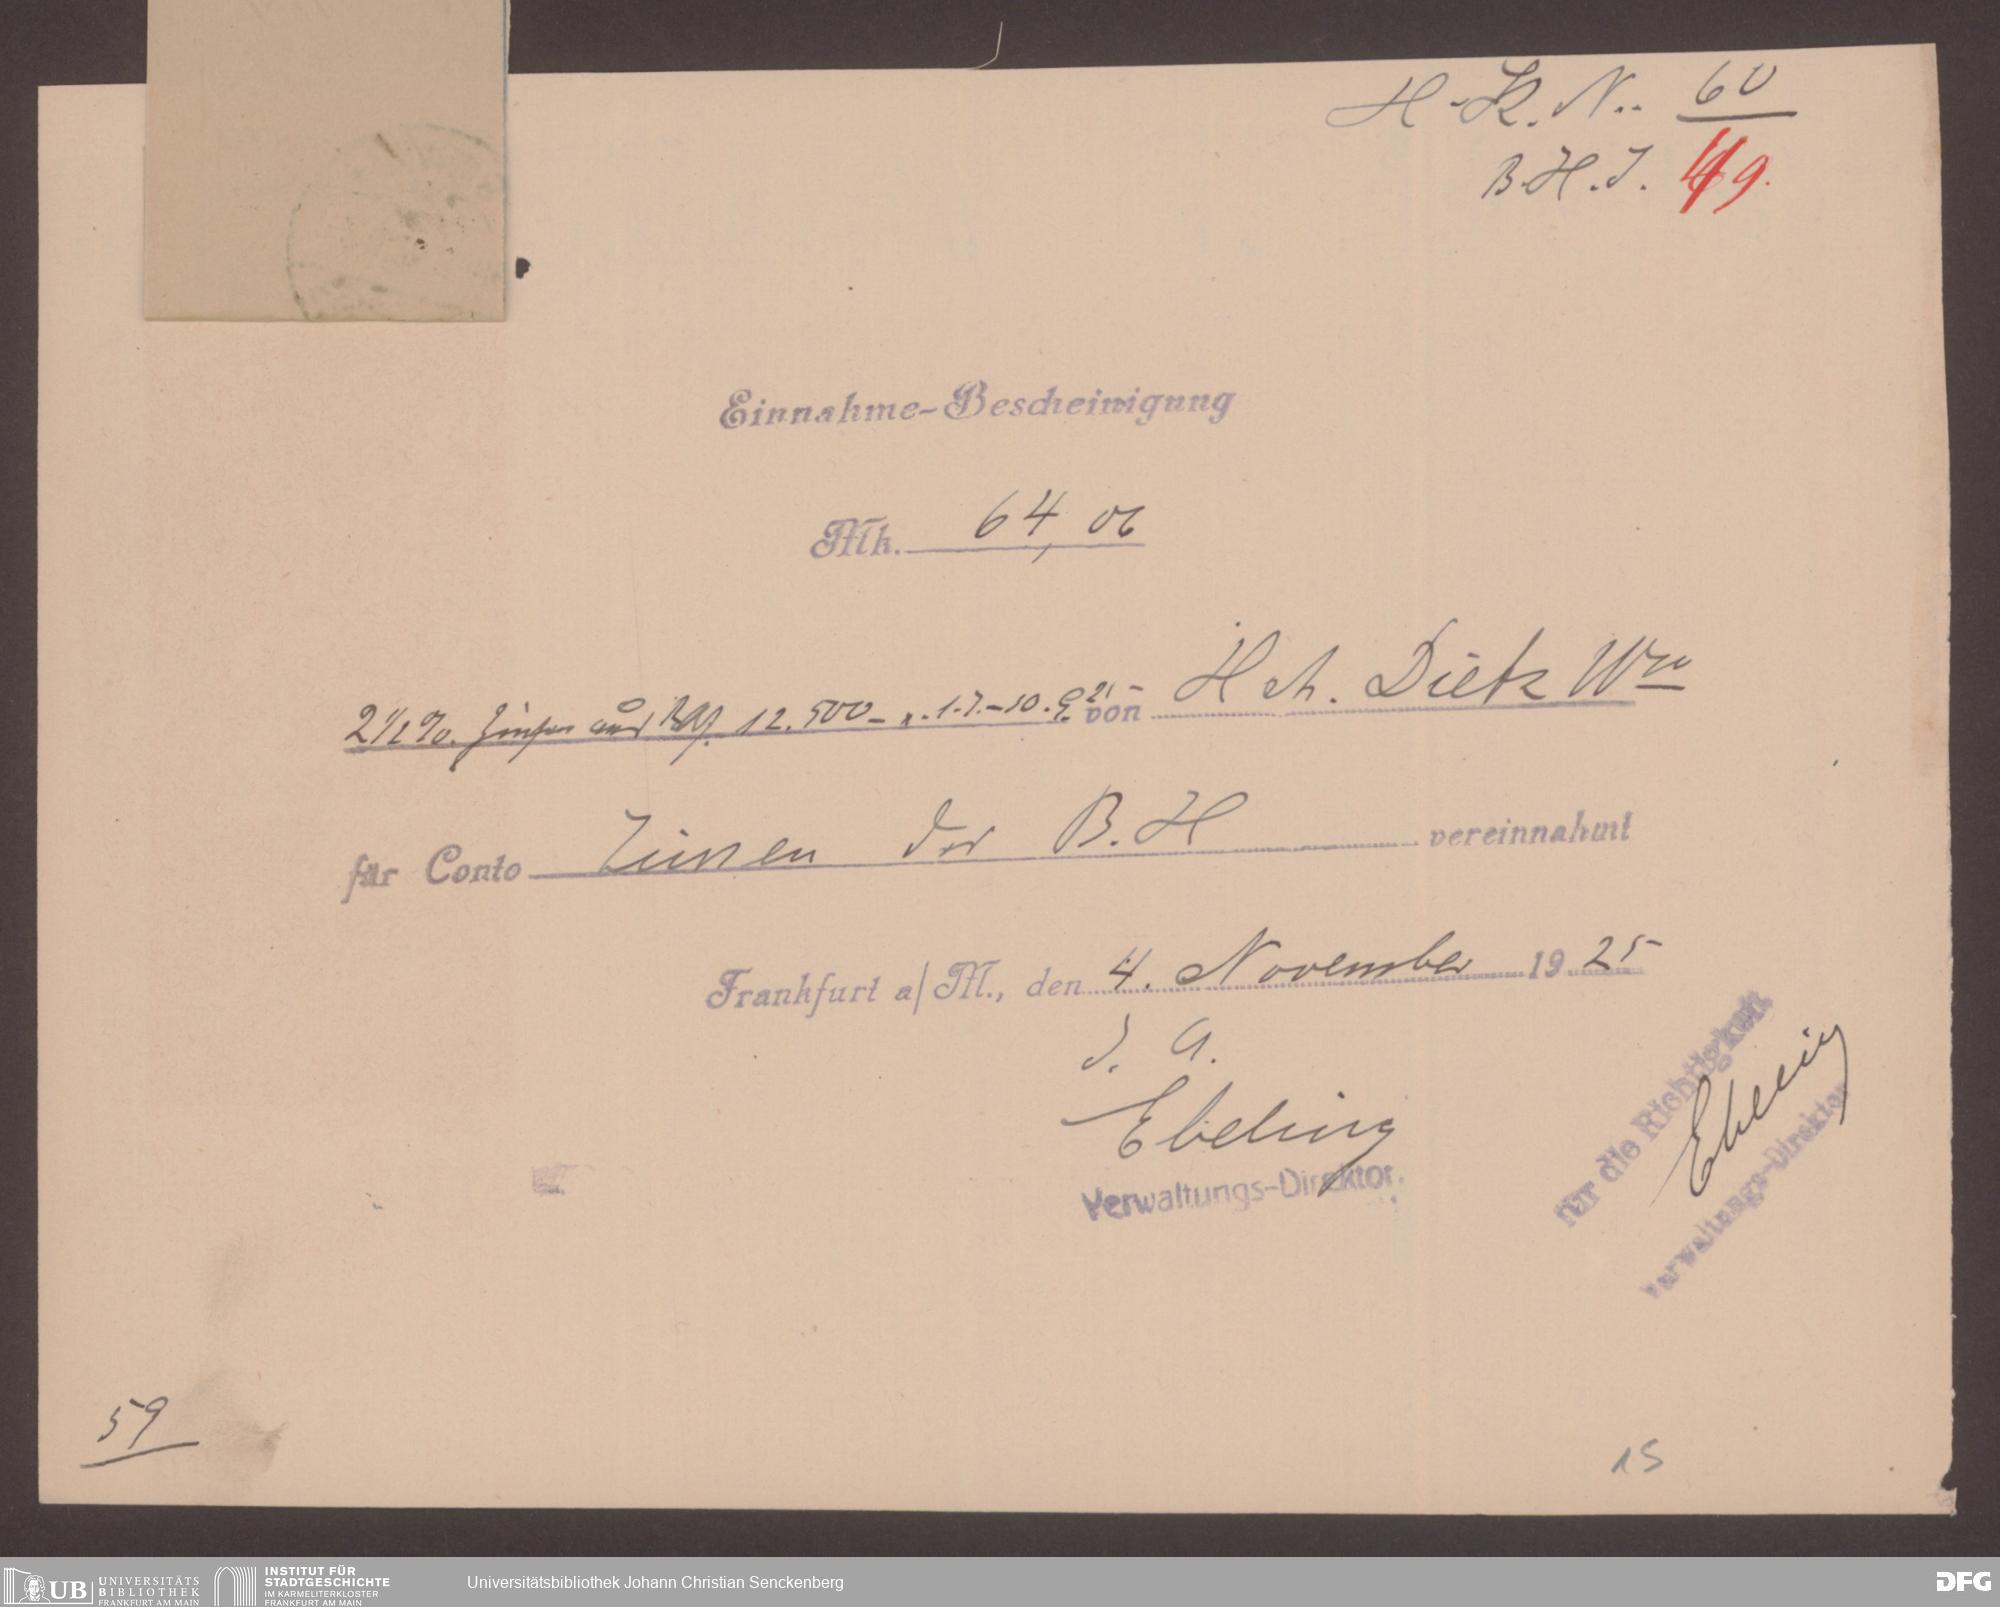 H.K.N. 60
B.H.J. 49.
Einnahme-Bescheinigung
Mk. 64,06
2 1/2 %. Zinsen aus 12.500.- v. 1.7.-10. 25 von Hch. Dietz Wwe
für Conto Zinsen der B.H vereinnahmt
Frankfurt a/M., den 4. November 1925
J. A.
Ebeling
Verwaltungs-Direktor.
für die Richtigkeit
Ebeling
Verwaltungs-Direktor
59
15
UB UNIVERSITÄTS
BIBLIOTHEK
FRANKFURT AM MAIN
INSTITUT FÜR
STADTGESCHICHTE
IM KARMELITERKLOSTER
FRANKFURT AM MAIN
Universitätsbibliothek Johann Christian Senckenberg
DFG